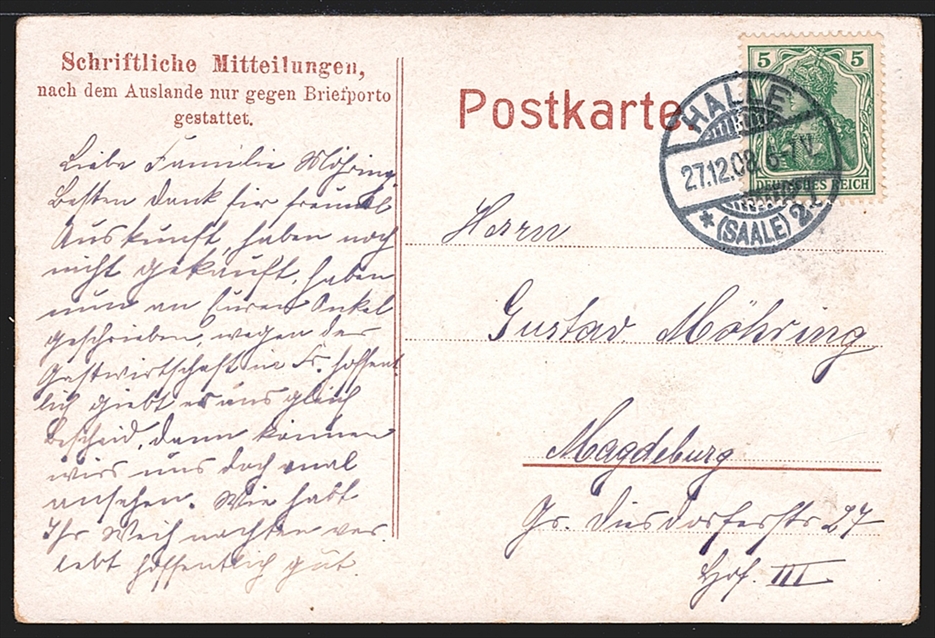 Schriftliche Mitteilungen,
nach dem Auslande nur gegen Briefporto
gestattet.
Postkarte
5 5
DEUTSCHES REICH
HALLE
27.12.08. 6-7V.
* (SAALE) 2
Liebe Familie Möhring
Besten Dank für freundl
Auskunft, haben noch
nicht gekauft, haben
nun an Euren Onkel
geschrieben, wegen der
Gastwirtschaft in Fr. hoffent
lich giebt er uns gleich
Bescheid, dann können
wirs uns doch mal
ansehen. Wie habt
Ihr Weihnachten ver
lebt hoffentlich gut
Herrn
Gustav Möhring
Magdeburg
Gr. Diesdorferstr 27
Hof III